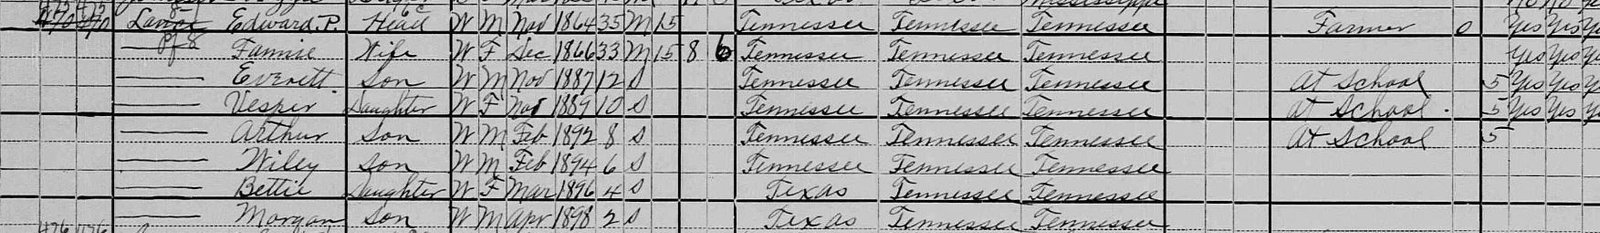 Edward P. Head W M Nov 1864 35 M 15 Tennessee Tennessee Tennessee Farmer O Yes Yes
Fannie Wife W F Dec 1866 33 M 15 8 6 Tennessee Tennessee Tennessee Yes Yes
Everett Son W M Nov 1887 12 S Tennessee Tennessee Tennessee At School 5 Yes Yes
Vesper Daughter W F Nov 1889 10 S Tennessee Tennessee Tennessee At School 5 Yes Yes
Arthur Son W M Feb 1892 8 S Tennessee Tennessee Tennessee At School 5
Wiley Son W M Feb 1894 6 S Tennessee Tennessee Tennessee
Bettie Daughter W F Mar 1896 4 S Texas Tennessee Tennessee
Morgan Son W M Apr 1898 2 S Texas Tennessee Tennessee
476 476